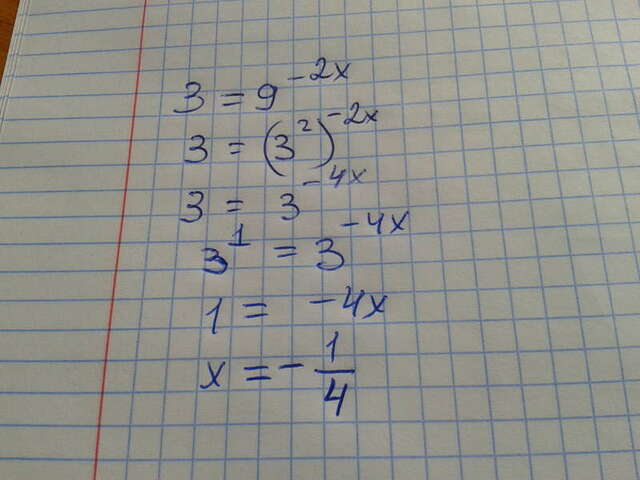 3 = 9^{-2x}
3 = (3^2)^{-2x}
3 = 3^{-4x}
3^1 = 3^{-4x}
1 = -4x
x = -\frac{1}{4}